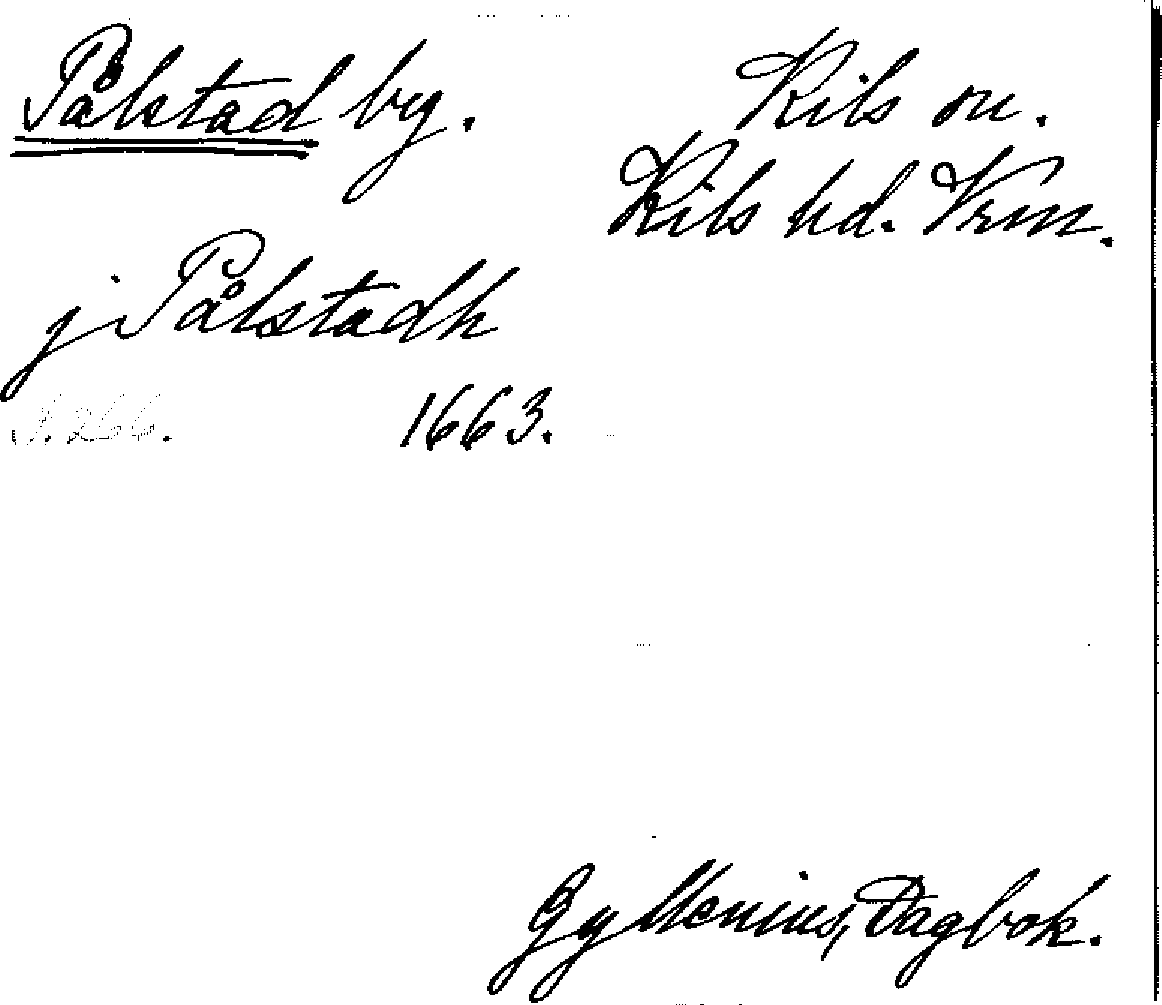 Pålstad by.
Kils sn.
Kils hd. Vrm.
j Pålstadh
S. 266. 1663.
Gyllenius, Dagbok.